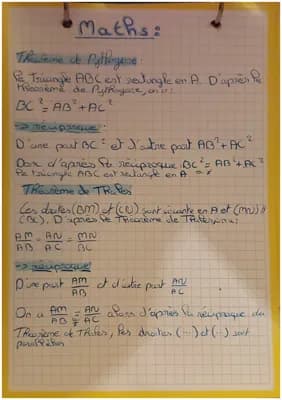 Maths:
Théorème de Pythagore:
Le Triangle ABC est rectangle en A. D'après le
théorème de Pythagore, on a:
BC² = AB² + AC²
→ réciproque:
D'une part BC² et d'autre part AB² + AC²
Donc d'après la réciproque BC² = AB² + AC²
le triangle ABC est rectangle en A
Théorème de Thales
Les droites (BM) et (CN) sont sécante en A et (MN) //
(BC). D'après le Théorème de Thales on a:
AM/AB = AN/AC = MN/BC
→ réciproque
D'une part AM/AB et d'autre part AN/AC
On a AM/AB = AN/AC alors d'après la réciproque du
Théorème de Thales, les droites (...) et (...) sont
parallèles